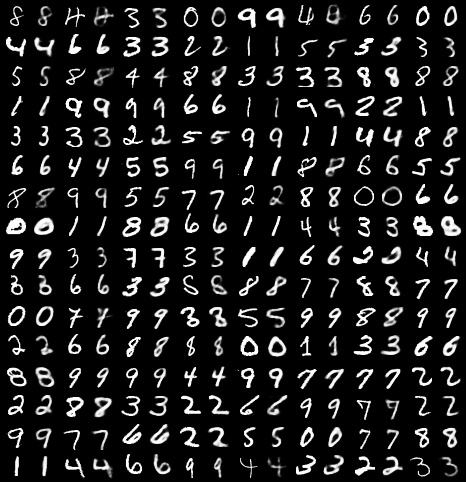 8 8 4 4 3 3 0 0 9 9 4 0 6 6 0 0
4 4 6 6 3 3 2 2 1 1 5 5 3 3 3 3
5 5 8 8 4 4 8 8 3 3 3 3 8 8 8 8
1 1 9 9 9 9 6 6 1 1 9 9 2 2 1 1
3 3 3 3 2 2 5 5 9 9 1 1 4 4 8 8
6 6 4 4 5 5 9 9 1 1 8 8 6 6 5 5
8 8 9 9 5 5 7 7 2 2 8 8 0 0 6 6
0 0 1 1 8 8 6 6 1 1 4 4 3 3 8 8
9 9 3 3 7 7 3 3 1 1 6 6 2 2 4 4
3 3 6 6 3 3 8 8 8 8 7 7 8 8 7 7
0 0 7 7 9 9 3 3 5 5 9 9 8 8 9 9
2 2 6 6 8 8 8 8 0 0 1 1 3 3 6 6
8 8 9 9 9 9 4 4 9 9 7 7 7 7 2 2
2 2 8 8 3 3 2 2 6 6 9 9 7 7 2 2
9 9 7 7 6 6 2 2 5 5 0 0 7 7 8 8
1 1 4 4 6 6 9 9 4 4 3 3 2 2 3 3